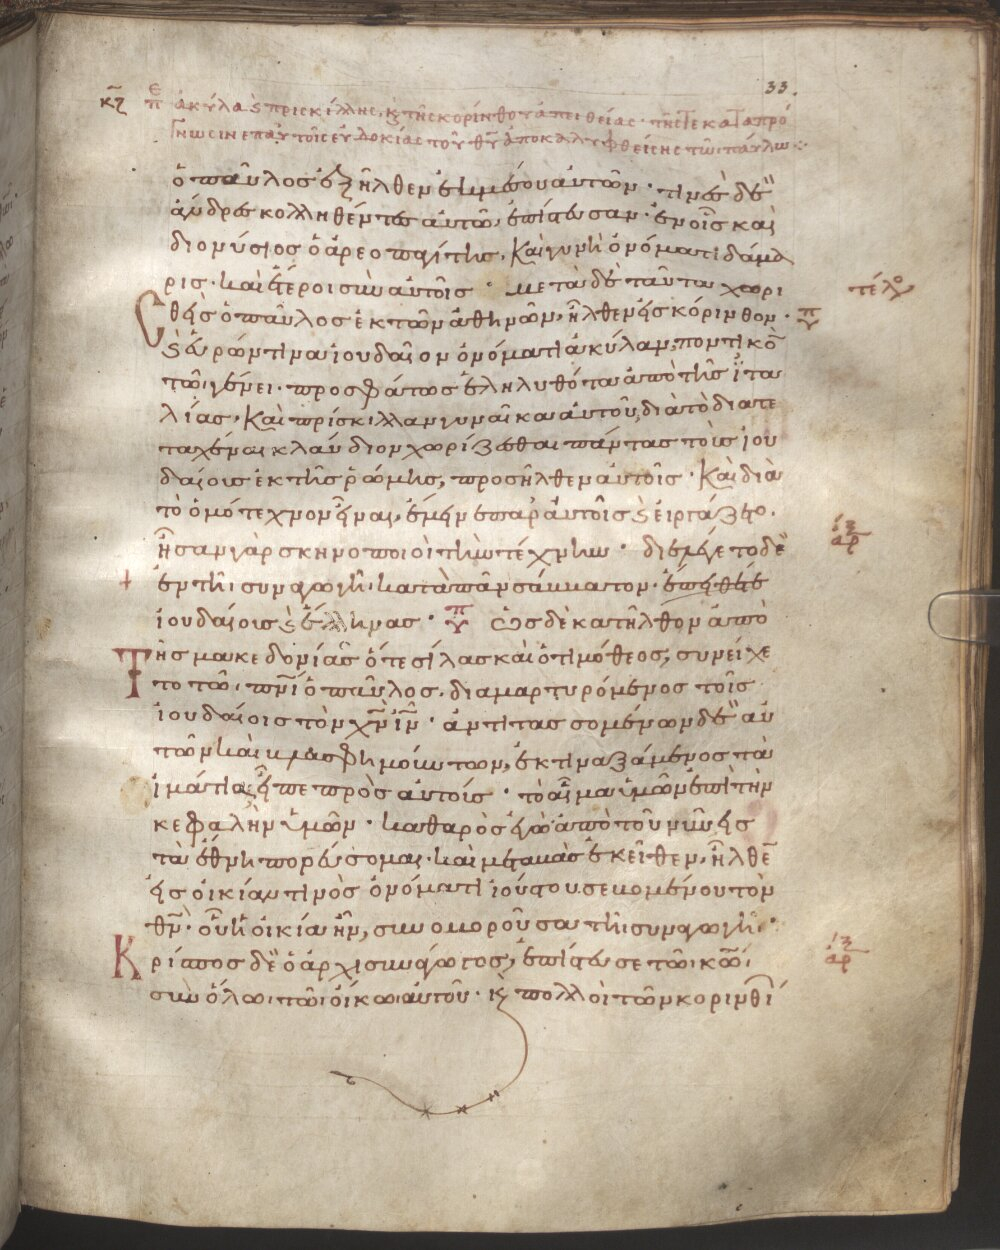 33.
κζ π ἀκύλα ϗ πρισκίλλης, ϗ τῆς κορίνθου ἀπειθείας · τῆς τε κατὰ πρό
γνωσιν επ' αὐτοῖς εὐδοκίας τοῦ θυ ἀποκαλυφθείσης τῶ παύλω:·
ὁ παῦλος ἐξῆλθεν ἐκ μέσου αὐτῶν · τινὲς δὲ
ἄνδρες κολληθέντες αὐτῶ, ἐπίστευσαν · ἐν οἷς καὶ
διονύσιος ὁ ἀρεοπαγίτης, καὶ γυνὴ ὀνόματι δάμα
ρις · καὶ ἕτεροι σὺν αὐτοῖς · μετὰ δὲ ταῦτα χωρι
τέλος
σθεὶς ὁ παῦλος ἐκ τῶν ἀθηνῶν, ἦλθεν εἰς κόρινθον ·
ϗ εὑρών τινα ἰουδαῖον ὀνόματι ἀκύλαν, ποντικὸ
τῶ γένει · προσφάτως ἐληλυθότα ἀπὸ τῆς ἰτα
λίας · Καὶ πρίσκιλλαν γυναῖκα αὐτοῦ, διὰ τὸ διατε
ταχέναι κλαύδιον χωρίζεσθαι πάντας τοὺς ἰου
δαίους ἐκ τῆς ῥώμης, προσῆλθεν αὐτοῖς · Καὶ διὰ
τὸ ὁμότεχνον εἶναι, ἔμεν παρ' αὐτοῖς ϗ εἰργάζετο.
ἦσαν γὰρ σκηνοποιοὶ τὴν τέχνην · διελέγετο δὲ
ἀρ
ἐν τῆ συναγωγῆ · κατὰ πᾶν σάμματον · ἔπειθέ
ἰουδαίους ϗ ἕλληνας · ὡς δὲ κατῆλθον ἀπὸ
Τῆς μακεδονίας ὅτε σίλας καὶ ὁ τιμόθεος, συνείχε
το τῶ πνι ὁ παῦλος, διαμαρτυρόμενος τοῖς
ἰουδαίοις τὸν χν ιν · ἀντιτασσομένων δὲ αὐ
τῶν καὶ βλασφημούντων, ἐκτιναξάμενος τὰ
ἱμάτια, εἶπε πρὸς αὐτούς · τὸ αἷμα ὑμῶν ἐπὶ τὴν
κεφαλὴν ὑμῶν · καθαρὸς ἐγὼ ἀπὸ τοῦ νῦν εἰς
τὰ ἔθνη πορεύσομαι · καὶ μεταβὰς ἐκεῖθεν, ἦλθε
εἰς οἰκίαν τινὸς ὀνόματι ἰούστου σεβομένου τὸν
θν · οὗ ἡ οἰκία ἦν, συνομοροῦσα τῆ συναγωγῆ ·
Κρίσπος δὲ ὁ ἀρχισυνάγωγος, ἐπίστευσε τῶ κω,
ἀρ
σὺν ὅλω τῶ οἴκω αὐτοῦ · ϗ πολλοὶ τῶν κορινθί